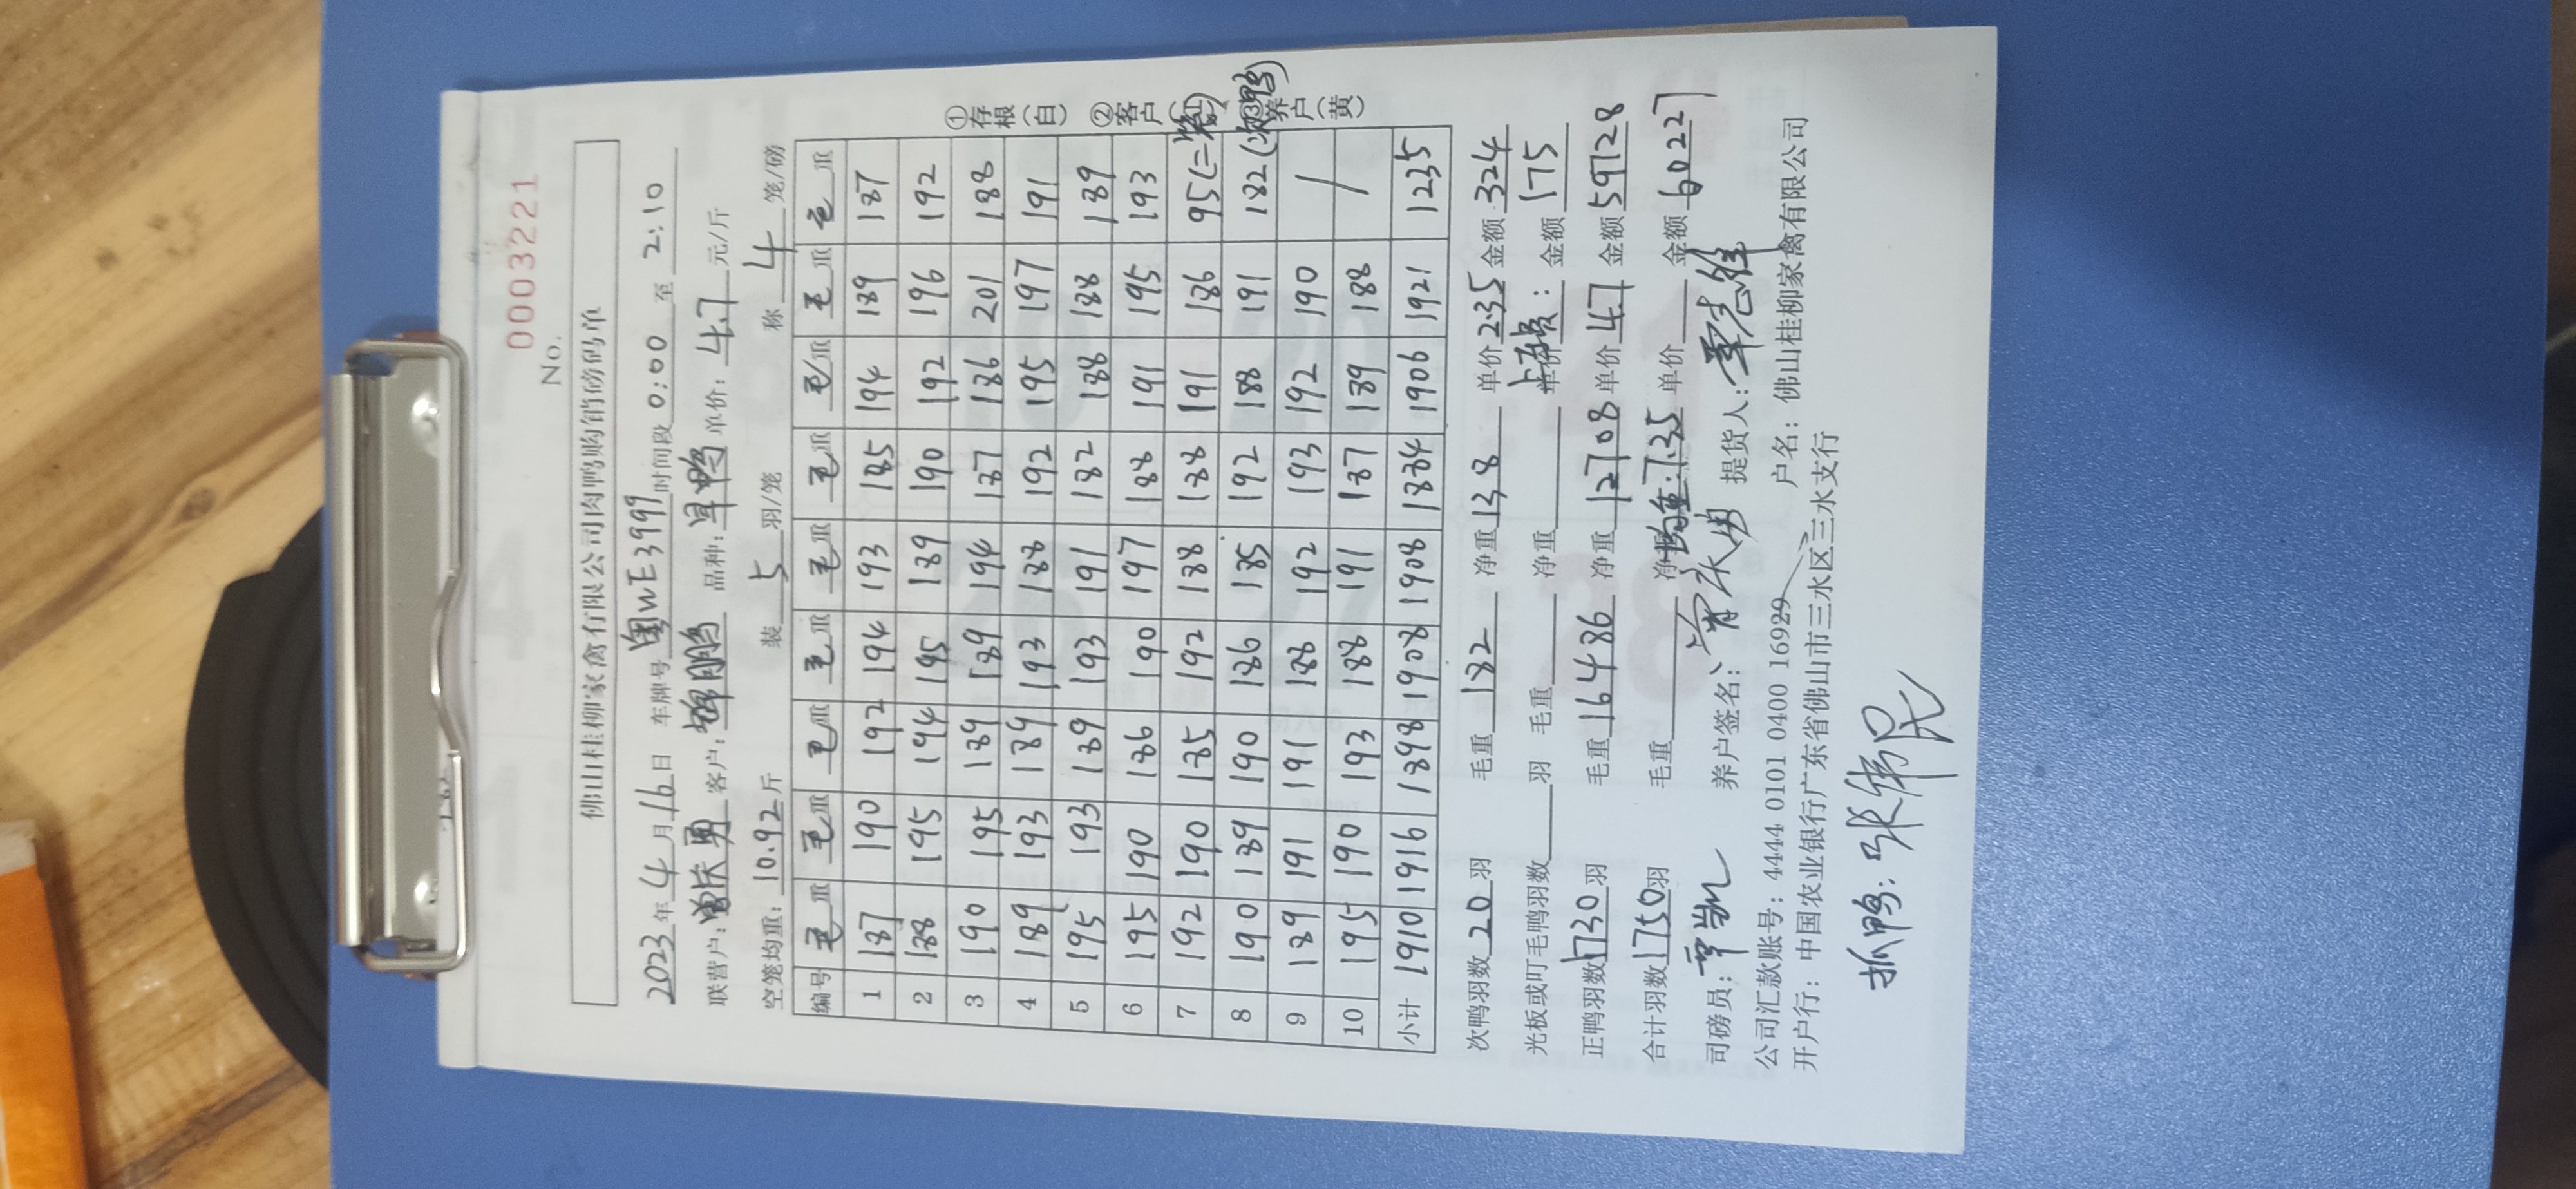 No. 0003221
佛山桂柳家禽有限公司肉鸭购销磅码单
2023年4月16日 车牌号粤WE3999时间段0:00至2:10
联营户:曾庆勇 客户: 品种:草鸭 单价:4.7元/斤
空笼均重:10.92斤 装5羽/笼 称4笼/磅
编号 毛重 毛重 毛重 毛重 毛重 毛重 毛重 毛重 毛重
1 187 190 192 194 193 185 194 189 187
2 188 195 194 195 189 190 192 196 192
3 190 195 189 189 194 187 186 201 188
4 189 193 189 193 188 192 195 197 191
5 195 193 189 193 191 182 188 188 189
6 195 190 186 190 197 188 191 195 193
7 192 190 185 192 188 188 191 186 95(二笼)
8 190 189 190 186 185 192 188 191 182(次鸭)
9 189 191 191 188 192 193 192 190 /
10 195 190 193 188 191 187 189 188 /
小计 1910 1916 1898 1908 1908 1884 1906 1921 1235
①存根(白) ②客户(红) ③养户(黄)
次鸭羽数20羽 毛重182 净重138 单价2.35金额324
光板或叮毛鸭羽数 羽 毛重 净重 单价上车费:金额175
正鸭羽数1730羽 毛重16486 净重12708单价4.7金额59728
合计羽数1750羽 毛重 净重均重:7.35 单价 金额60227
司磅员: 养户签名: 提货人:
公司汇款账号:4444 0101 0400 16929 户名:佛山桂柳家禽有限公司
开户行:中国农业银行广东省佛山市三水区三水支行
抓鸭:张伟民